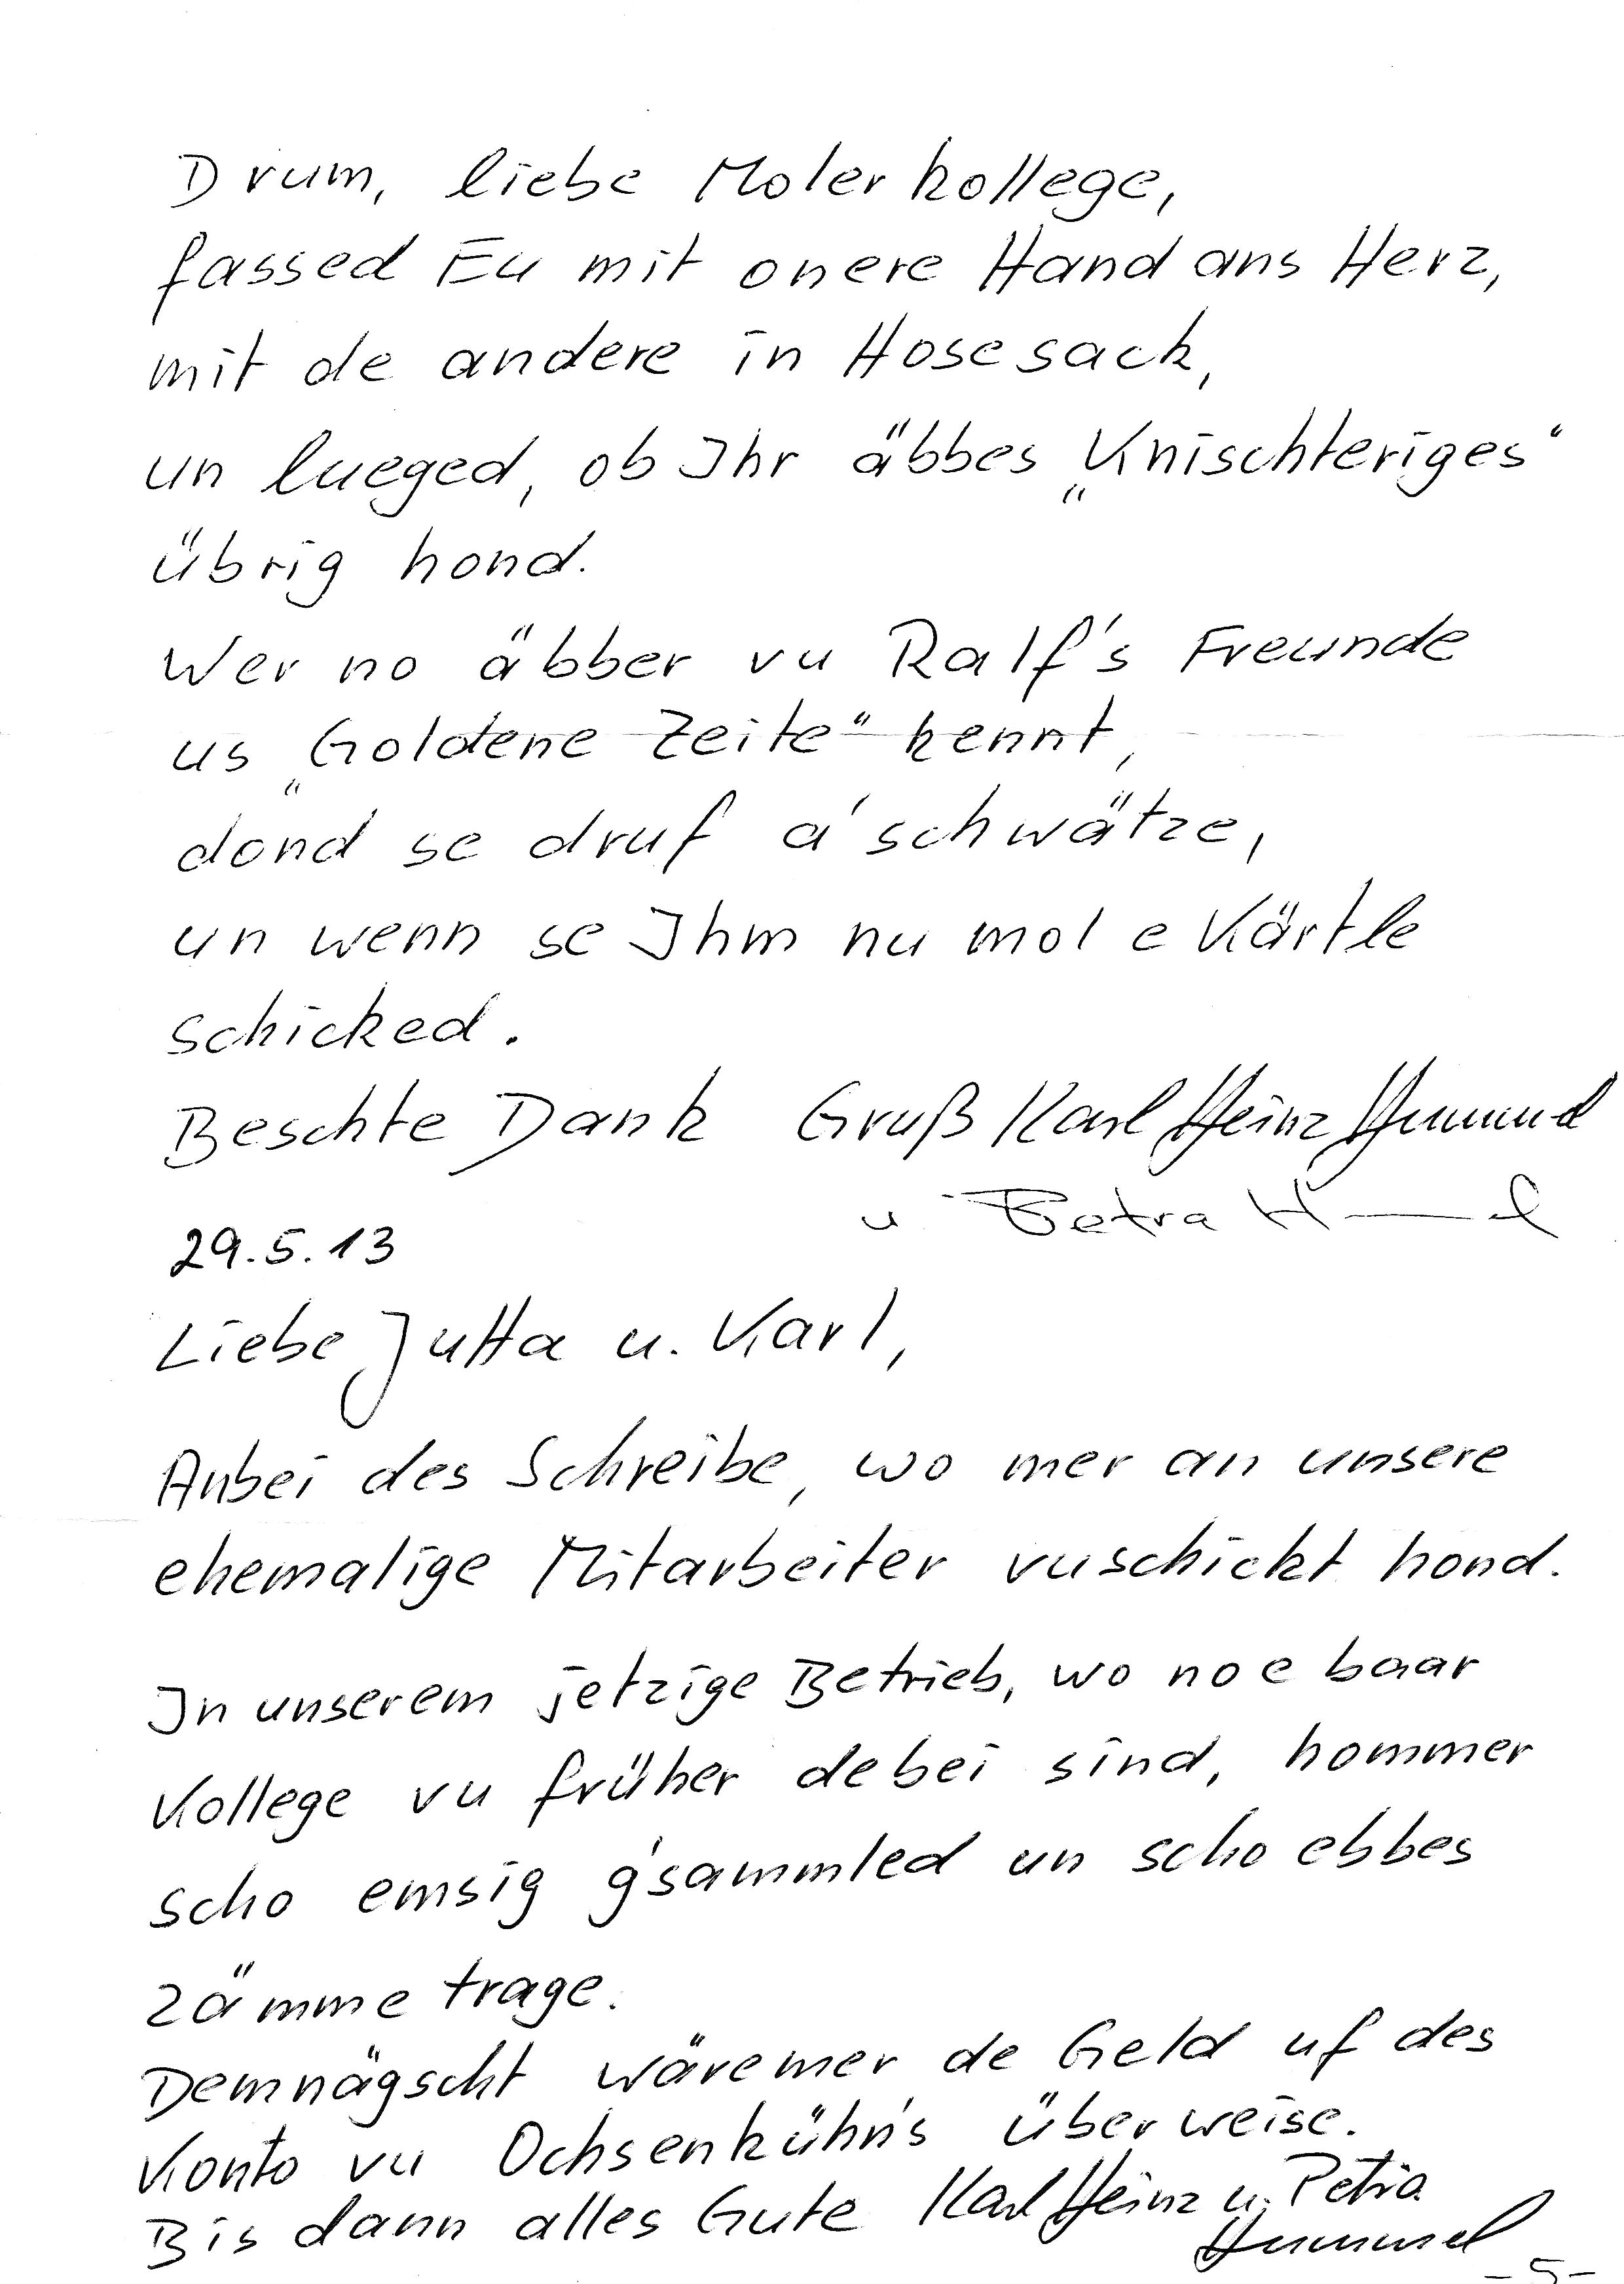 Drum, liebe Molerkollege,
fassed Eu mit onere Hand ans Herz,
mit de andere in Hosesack,
un lueged, ob Ihr äbbes „Knischteriges“
übrig hond.
Wer no äbber vu Ralf's Freunde
us „Goldene Zeite“ kennt,
dond se druf a'schwätze,
un wenn se Ihm nu mol e Kärtle
schicked.
Beschte Dank Gruß Karl Heinz Hummel
u Petra H
29.5.13
Liebe Jutta u. Karl,
Anbei des Schreibe, wo mer an unsere
ehemalige Mitarbeiter vuschickt hond.
In unserem jetzige Betrieb, wo no e baar
Kollege vu früher debei sind, hommer
scho emsig g'sammled un scho ebbes
zämme trage.
Demnägscht wäremer de Geld uf des
Konto vu Ochsenkühn's überweise.
Bis dann alles Gute Karl Heinz u. Petra
Hummel
-5-